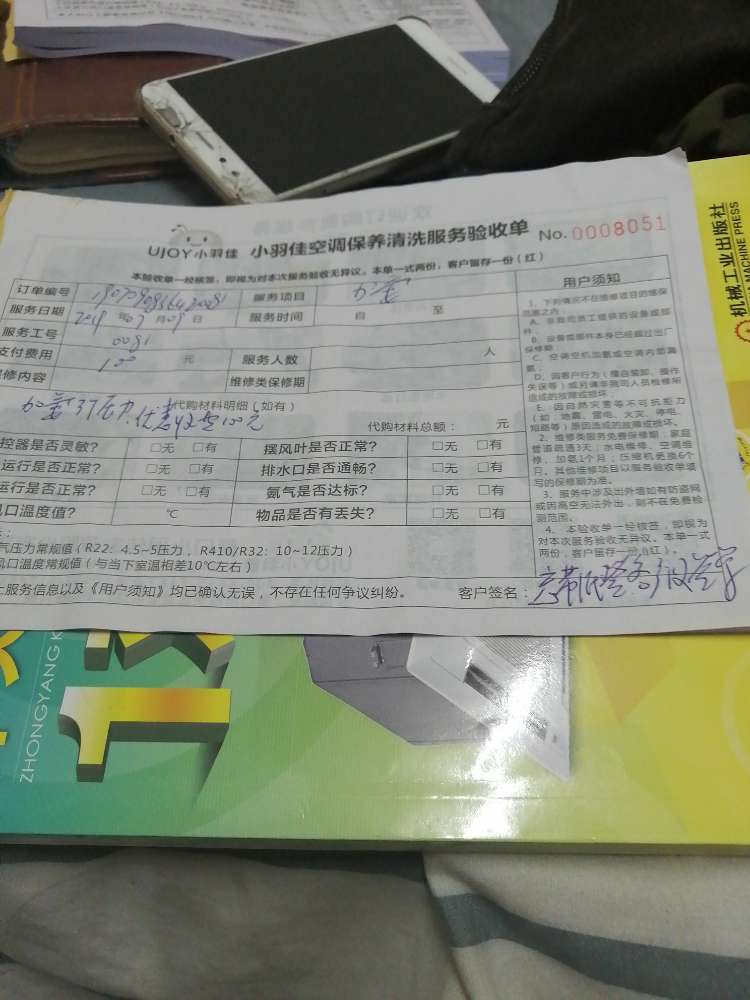 UJOY小羽佳 小羽佳空调保养清洗服务验收单 No.0008051
本验收单一经核签，即视为对本次服务验收无异议。本单一式两份，客户留存一份（红）
订单编号 服务项目 加氨
服务日期 2019 年 07 月 09 日 服务时间 自 至
服务工号 0081
支付费用 100 元 服务人数 人
修内容 维修类保修期
代购材料明细（如有）
优惠收当100元 代购材料总额： 元
控器是否灵敏? □无 □有 摆风叶是否正常? □无 □有
运行是否正常? □无 □有 排水口是否通畅? □无 □有
运行是否正常? □无 □有 氨气是否达标? □无 □有
风口温度值? ℃ 物品是否有丢失? □无 □有
气压力常规值（R22：4.5~5压力，R410/R32：10~12压力）
风口温度常规值（与当下室温相差10℃左右）
上服务信息以及《用户须知》均已确认无误，不存在任何争议纠纷。 客户签名：
用户须知
1、下列情况不在维修项目的维保
范围之内：
A、非我司员工提供的设备或部
件；
B、设备或部件本身已经超过出厂
保修期；
C、空调空机加氨或空调内部漏
氨；
D、因客户行为（擅自装卸、操作
失误等）或另请非我司人员检修所
造成的故障或损坏；
E、因自然灾害等不可抗拒力
（如：地震、雷电、火灾、停电、
短路等）原因造成的故障或损坏。
2、维修类服务免费保修期：家庭
管道疏通3天；水电维修、空调维
修、加氨1个月；压缩机更换6个
月。其他维修项目以服务验收单填
写的保修期为准。
3、服务中涉及出外墙如有防盗网
或因高空无法外出，则不在免费检
测范围。
4、本验收单一经核签，即视为
对本次服务验收无异议。本单一式
两份，客户留存一份（红）。
机械工业出版社
MACHINE PRESS
ZHONGYANG K